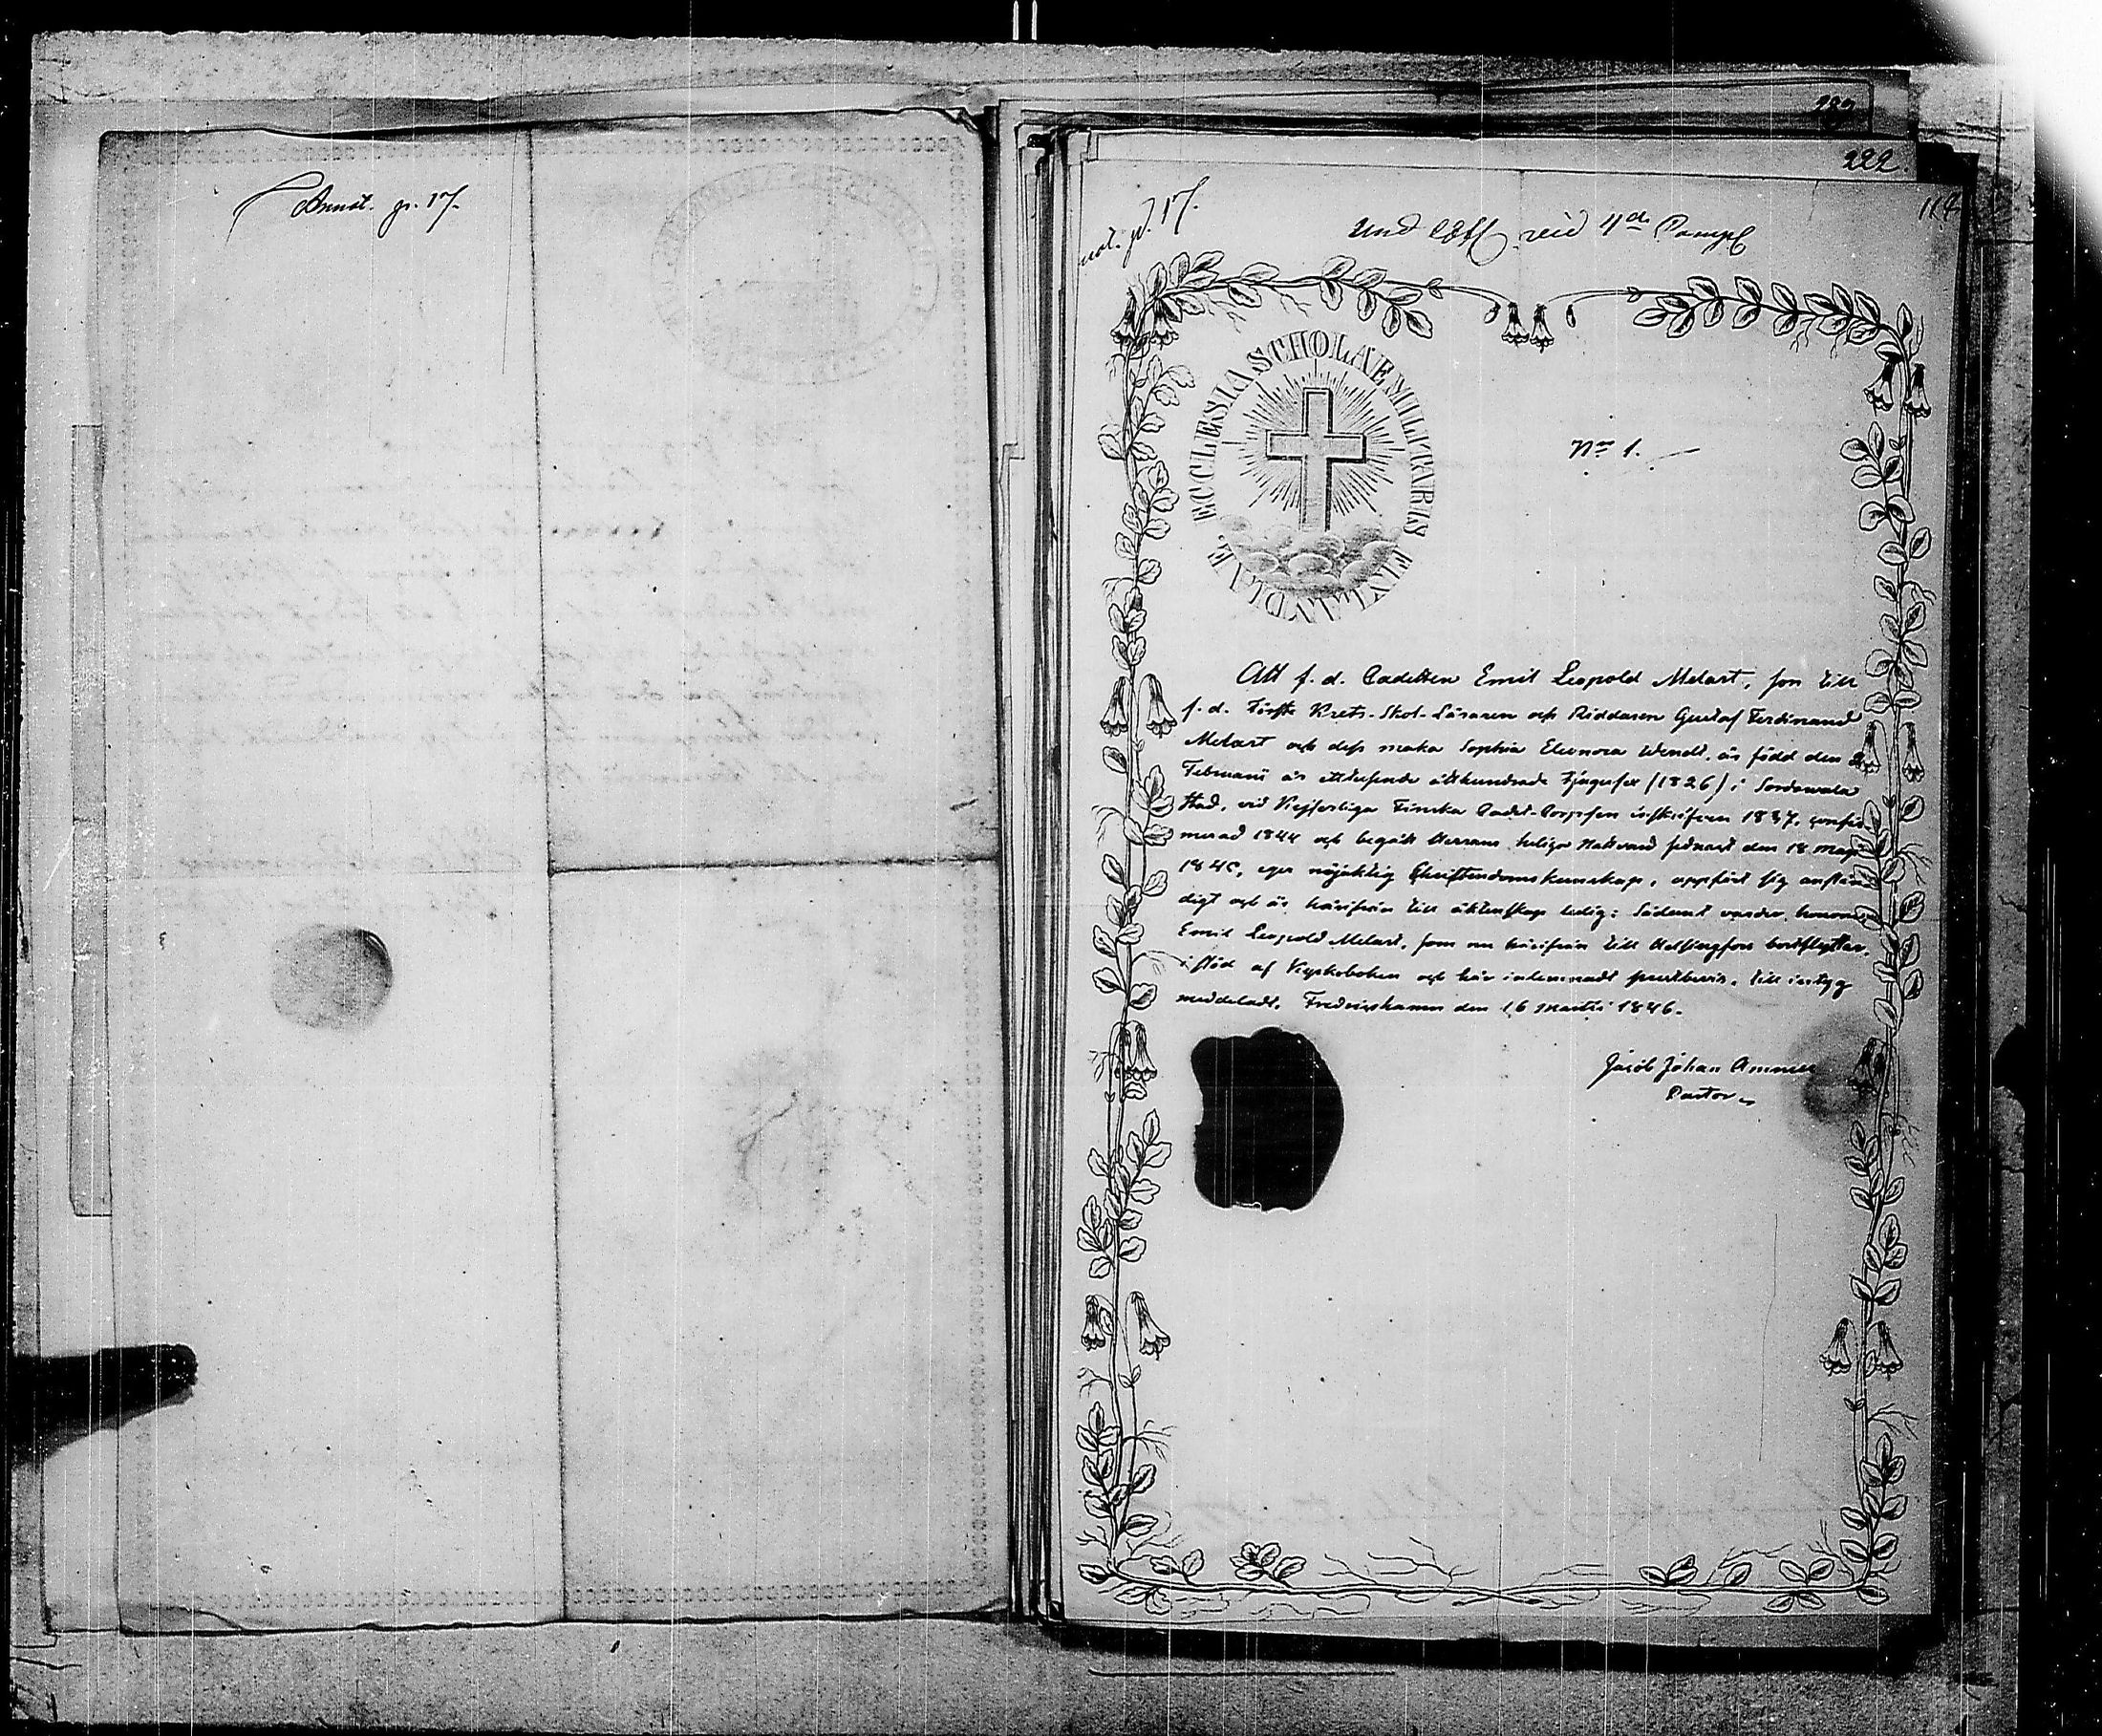 Anmält. p. 17.
222.
114
p. 17.
Und Off vid 4de Compl
ECCLESIA SCHOLAE MILITARIS FINLANDIAE.
No 1.
Att f. d. Cadetten Emil Leopold Melart, son till
f. d. Förste Krets-Skol-Läraren och Riddaren Gustaf Ferdinand
Melart och dess maka Sophia Eleonora Wendt, är född den
Februarii år ettusende åttahundrade tjugusex (1826) i Sordawala
stad, vid Kejserliga Finska Cadet-Corpsen inskrifven 1837, confir
merad 1844 och begått Herrans heliga Nattvard sednast den 18 Maji
184, eger nöjaktig Christendomskunskap, uppfört sig anstän
digt och är härifrån till äktenskap ledig; Sådant varder honom
Emil Leopold Melart, som nu härifrån till Helsingfors bortflyttar,
i stöd af Kyrkoboken och här inlemnadt prestbevis, till intyg
meddeladt. Fredrikshamn den 16 Martii 1846.
Jacob Johan
Pastor